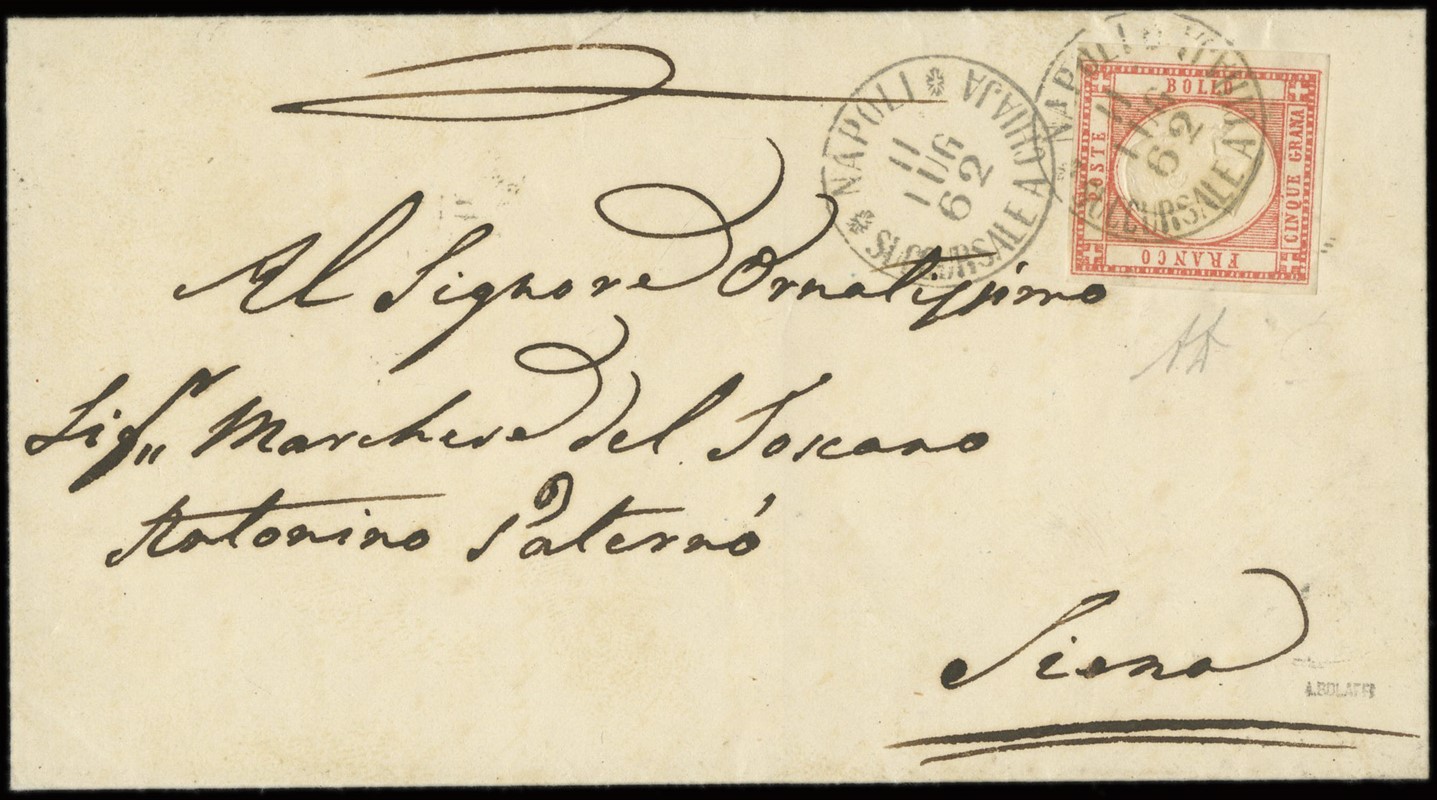 NAPOLI * CHIAJA * SUCCURSALE A
11
LUG
62
NAPOLI * CHIAJA * SUCCURSALE A
11
LUG
62
BOLLO
POSTE
CINQUE GRANA
FRANCO
Al Signore Ornatissimo
Sig.r Marchese del Toscano
Antonino Paternò
Siena
A.BOLAFFI